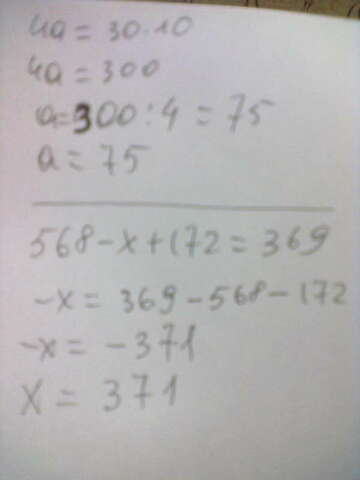 4a = 30·10
4a = 300
a = 300 : 4 = 75
a = 75
568 - x + 172 = 369
-x = 369 - 568 - 172
-x = -371
x = 371